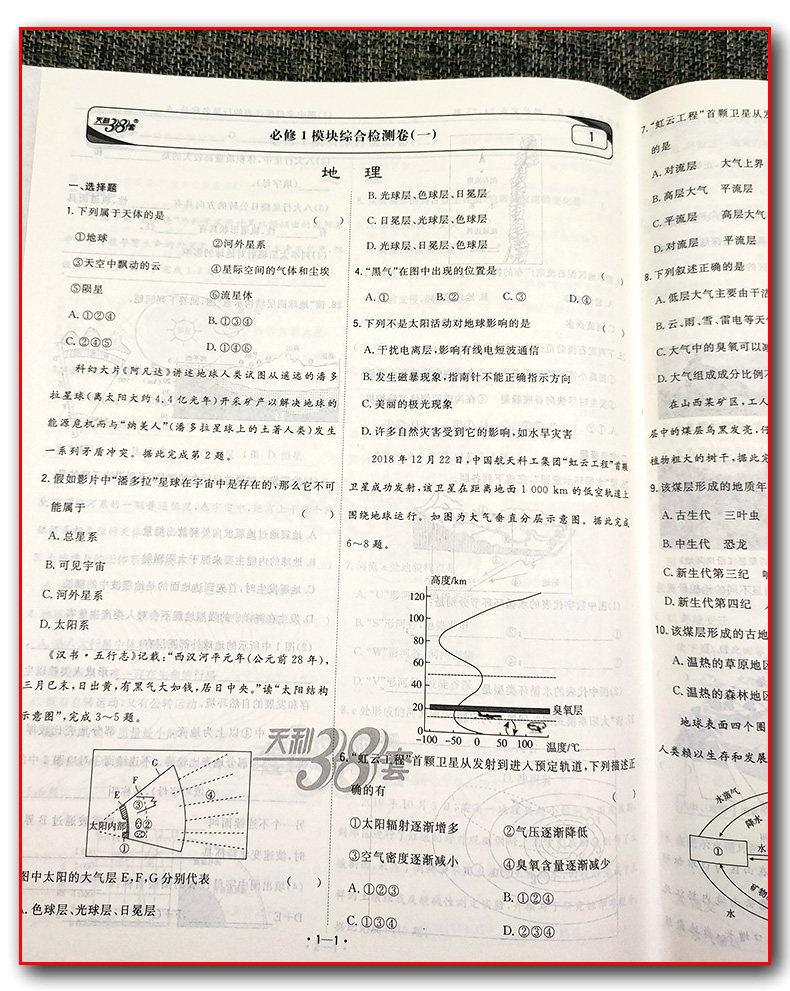 天利38套®
必修1模块综合检测卷(一)
1
地 理
一、选择题
1. 下列属于天体的是 ( )
①地球 ②河外星系
③天空中飘动的云 ④星际空间的气体和尘埃
⑤陨星 ⑥流星体
A. ①②④ B. ①③④
C. ②④⑤ D. ①④⑥
科幻大片《阿凡达》讲述地球人类试图从遥远的潘多
拉星球(离太阳大约4.4亿光年)开采矿产以解决地球的
能源危机而与“纳美人”(潘多拉星球上的土著人类)发生
一系列矛盾冲突。据此完成第2题。
2. 假如影片中“潘多拉”星球在宇宙中是存在的,那么它不可
能属于 ( )
A. 总星系
B. 可见宇宙
C. 河外星系
D. 太阳系
《汉书·五行志》记载:“西汉河平元年(公元前28年),
三月已未,日出黄,有黑气大如钱,居日中央。”读“太阳结构
示意图”,完成3~5题。
G
F
E
③
④
②
太阳内部
①
图中太阳的大气层E、F、G分别代表 ( )
A. 色球层、光球层、日冕层
B. 光球层、色球层、日冕层
C. 日冕层、光球层、色球层
D. 光球层、日冕层、色球层
4. “黑气”在图中出现的位置是 ( )
A. ① B. ② C. ③ D. ④
5. 下列不是太阳活动对地球影响的是 ( )
A. 干扰电离层,影响有线电短波通信
B. 发生磁暴现象,指南针不能正确指示方向
C. 美丽的极光现象
D. 许多自然灾害受到它的影响,如水旱灾害
2018年12月22日,中国航天科工集团“虹云工程”首颗
卫星成功发射,该卫星在距离地面1 000 km的低空轨道上
围绕地球运行。如图为大气垂直分层示意图。据此完成
6~8题。
高度/km
120
100
80
60
40
20
0
臭氧层
-100 -50 0 50 100
温度/℃
天利38套
6. “虹云工程”首颗卫星从发射到进入预定轨道,下列描述正
确的有 ( )
①太阳辐射逐渐增多 ②气压逐渐降低
③空气密度逐渐减小 ④臭氧含量逐渐减少
A. ①②③ B. ①②④
C. ①③④ D. ②③④
·1—1·
7. “虹云工程”首颗卫星从发
的是
A. 对流层 大气上界
B. 高层大气 平流层
C. 平流层 高层大气
D. 对流层 平流层
8. 下列叙述正确的是
A. 低层大气主要由干洁
B. 云、雨、雪、雷电等天
C. 大气中的臭氧可以
D. 大气组成成分比例不
在山西某矿区,工人
层中的煤层乌黑发亮,
植物粗大的树干,据此完
9. 该煤层形成的地质年
A. 古生代 三叶虫
B. 中生代 恐龙
C. 新生代第三纪
D. 新生代第四纪
10. 该煤层形成的古地
A. 温热的草原地区
C. 温热的森林地区
地球表面四个圈
人类赖以生存和发展
水蒸气
降水
①
水
矿物
水